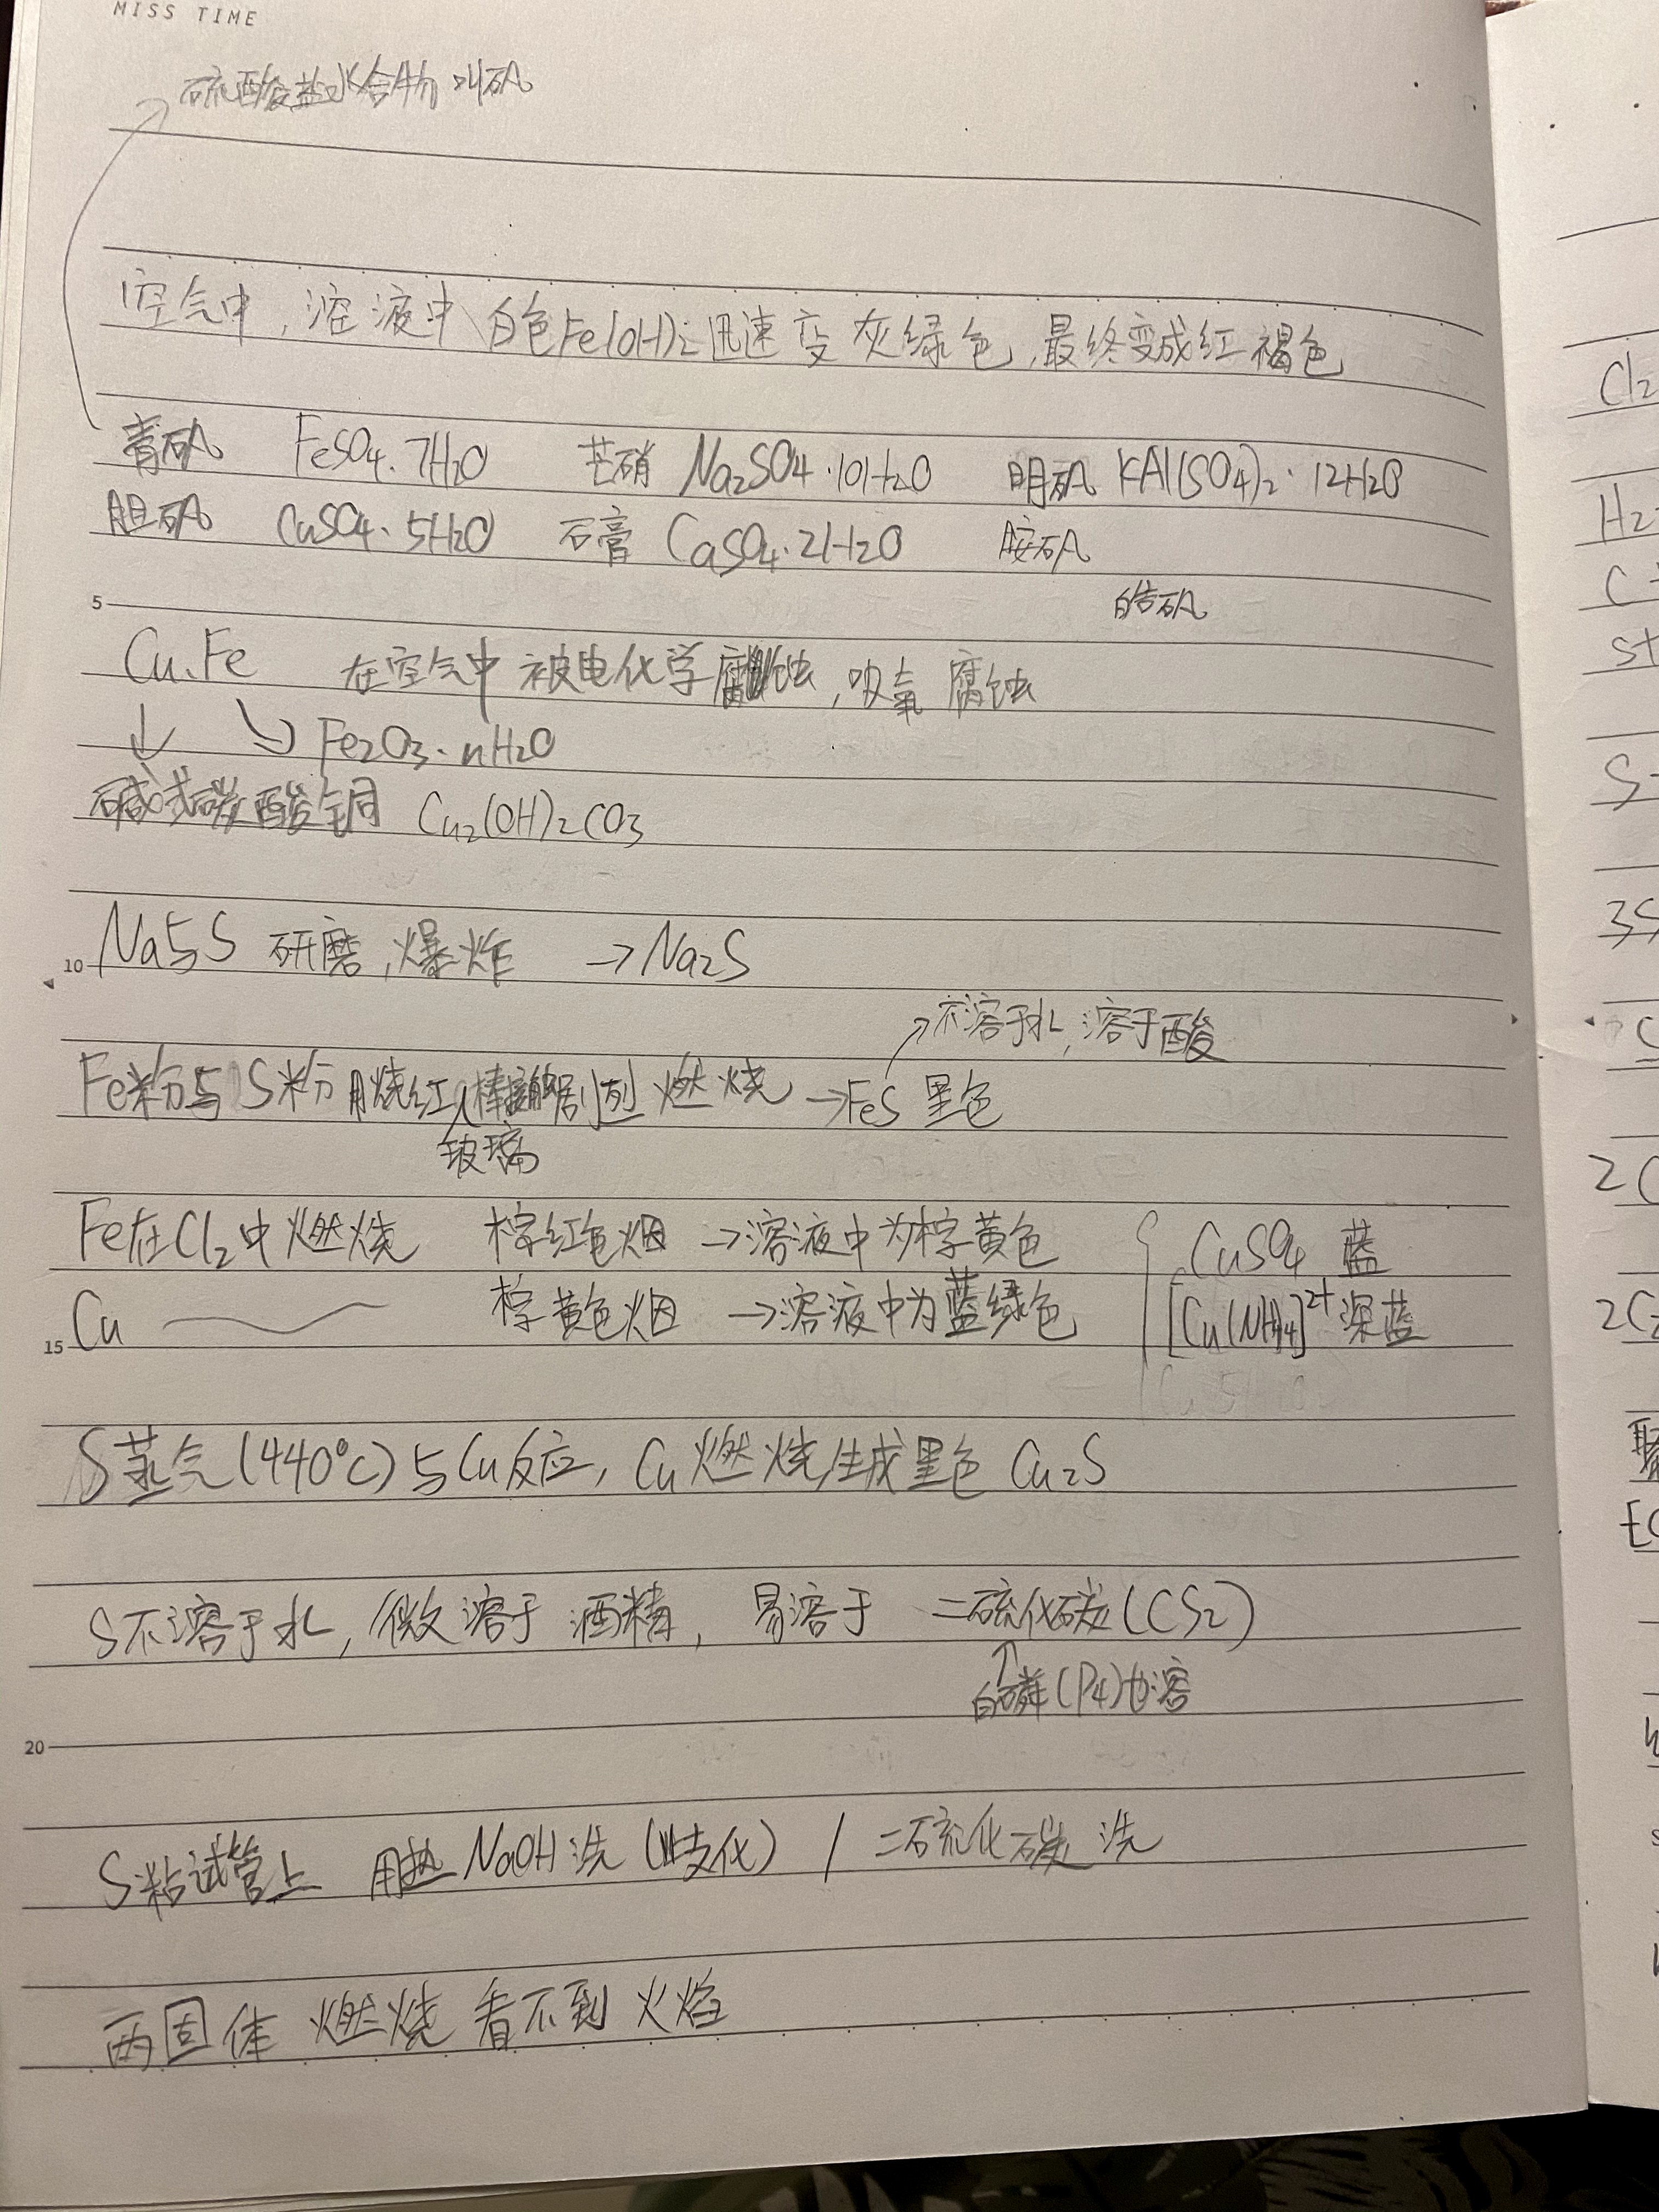 MISS TIME
硫酸盐水合物叫矾
空气中,溶液中 白色Fe(OH)₂迅速变灰绿色,最终变成红褐色
青矾 FeSO₄·7H₂O 芒硝 Na₂SO₄·10H₂O 明矾 KAl(SO₄)₂·12H₂O
胆矾 CuSO₄·5H₂O 石膏 CaSO₄·2H₂O 胺矾
皓矾
5
Cu.Fe 在空气中被电化学腐蚀,吸氧腐蚀
↓ ↘ Fe₂O₃·nH₂O
碱式碳酸铜 Cu₂(OH)₂CO₃
10
Na与S 研磨,爆炸 →Na₂S
↗不溶于水,溶于酸
Fe粉与S粉用烧红棒接触剧烈燃烧→FeS 黑色
玻璃
Fe在Cl₂中燃烧 棕红色烟 →溶液中为棕黄色 CuSO₄ 蓝
Cu 棕黄色烟 →溶液中为蓝绿色 [Cu(NH₃)₄]²⁺深蓝
15
S蒸气(440℃)与Cu反应,Cu燃烧生成黑色Cu₂S
S不溶于水,微溶于酒精,易溶于 二硫化碳(CS₂)
↑
白磷(P₄)也溶
20
S粘试管上 用热NaOH洗(歧化)/二硫化碳洗
两固体 燃烧 看不到火焰
Cl₂
H₂
C
St
S
3S
2C
2C